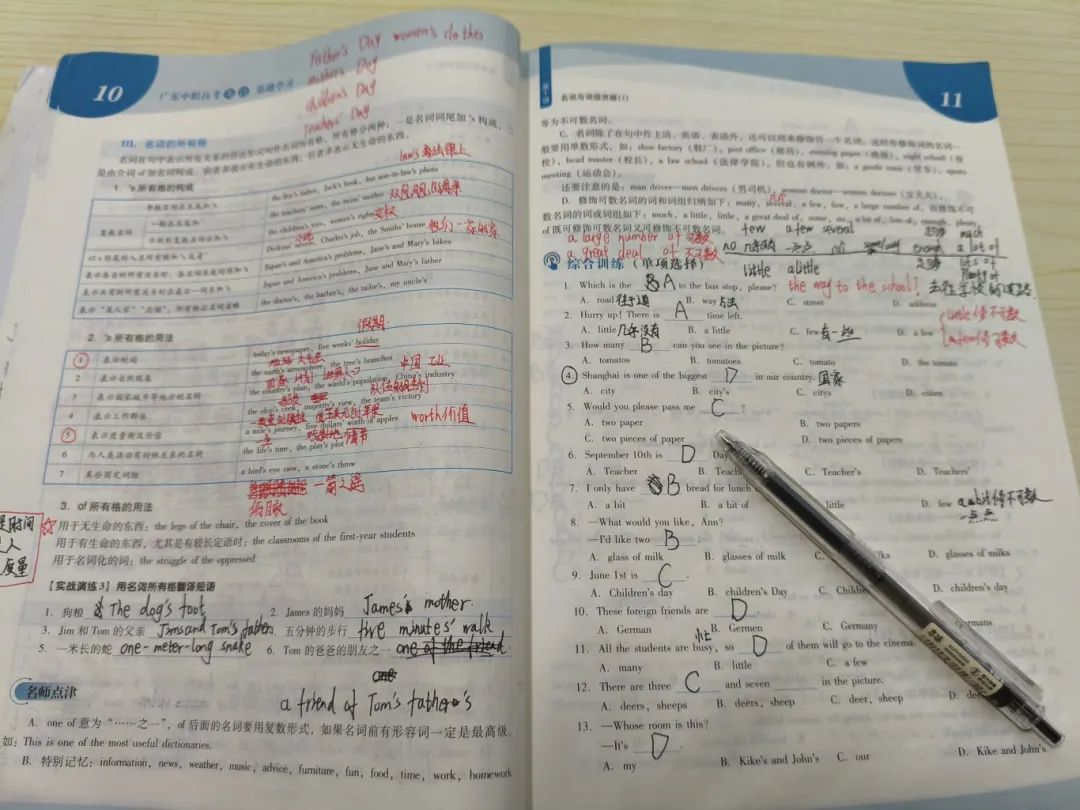 Father's Day women's clothes
mother's Day
children's Day
Teachers' Day
10
广东中职高考英语 基础学习
III. 名词的所有格
名词在句中表示所有关系的语法形式叫作名词所有格。所有格分两种：一是名词词尾加's构成，
是由介词of加名词构成。前者多表示有生命的东西，后者多表示无生命的东西。
1. 's所有格的构成
单数名词在末尾加's
the boy's father, Jack's book, her son-in-law's photo
复数名词
一般在末尾加'
the teachers' room, the twins' mother
不规则复数名词加's
the children's toys, women's rights 女权
Dickens' novels, Charles's job, the Smiths' house
以and连接的
Japan's and America's problems, Jane's and Mary's bikes
Japan and America's problems, Jane and Mary's father
表示"某人家""店铺"，所有格后名词省略
the doctor's, the barber's, the tailor's, my uncle's
2. 's所有格的用法
假期
1 表示时间
today's newspaper, five weeks' holiday
2 表示自然现象
the earth's atmosphere, the tree's branches
3 表示国家城市等地方的名词
the country's plan, the world's population, China's industry
4 表示工作群体
the ship's crew, majority's view, the team's victory
5 表示度量衡及价值
a mile's journey, five dollars' worth of apples worth价值
6 与人类活动有特殊关系的名词
the life's time, the play's plot 情节
7 某些固定词组
a bird's eye view, a stone's throw
一箭之遥
3. of 所有格的用法
用于无生命的东西：the legs of the chair, the cover of the book
用于有生命的东西，尤其是有较长定语时：the classrooms of the first-year students
用于名词化的词：the struggle of the oppressed
时间
人
度量
【实战演练3】用名词所有格翻译短语
1. 狗粮 The dog's foot 2. James的妈妈 James's mother.
3. Jim和Tom的父亲 Jim and Tom's father 4. 五分钟的步行 five minutes' walk
5. 一米长的蛇 one-meter-long snake 6. Tom的爸爸的朋友之一 one of the friend
a friend of Tom's father's
名师点津
A. one of 意为"……之一"，of后面的名词要用复数形式，如果名词前有形容词一定是最高级。
如：This is one of the most useful dictionaries.
B. 特别记忆：information, news, weather, music, advice, furniture, fun, food, time, work, homework
11
等为不可数名词。
C. 名词除了在句中作主语、宾语、表语外，还可以用来修饰另一个名词，这时作修饰词的名词一
般要用单数形式，如：shoe factory（鞋厂），post office（邮局），evening paper（晚报），night school（夜
校），head master（校长），a law school（法律学院）。但也有例外，如：a goods train（货车），sports
meeting（运动会）。
还要注意的是：man driver—men drivers（男司机），woman doctor—women doctors（女大夫）。
D. 修饰可数名词的词和词组归纳如下：many, several, a few, few, a large number of。 能修饰不可
数名词的词或词组如下：much, a little, little, a great deal of, some, no, a lot of, lots of, enough, plenty
of既可修饰可数名词又可修饰不可数名词。
few a few several
a large number of 可数
a great deal of 不可数
no 几乎没有 一点点 enough a lot of
little a little lots of
plenty of
综合训练（单项选择）
1. Which is the A to the bus stop, please? the way to the school?
A. road 街道 B. way 方法 C. street D. address
2. Hurry up! There is A time left.
A. little 几乎没有 B. a little C. few 有一些 D. a few
3. How many B can you see in the picture?
A. tomatos B. tomatoes C. tomato D. the tomato
4. Shanghai is one of the biggest D in our country. 国家
A. city B. city's C. citys D. cities
5. Would you please pass me C ?
A. two paper B. two papers
C. two pieces of paper D. two pieces of papers
6. September 10th is D Day
A. Teacher B. Teach C. Teacher's D. Teachers'
7. I only have B bread for lunch
A. a bit B. a bit of little D. few a bit修不可数
一点点
8. —What would you like, Ann?
—I'd like two B
A. glass of milk B. glasses of milk C. lks D. glasses of milks
9. June 1st is C .
A. Children's day B. children's Day C. Childre D. children's day
10. These foreign friends are D .
A. German B. Germen C. Germany ermans
11. All the students are busy, so D of them will go to the cinema.
A. many B. little C. a few
12. There are three C and seven in the picture.
A. deers, sheeps B. deers, sheep C. deer, sheep D. dee
13. —Whose room is this?
—It's D .
A. my B. Kike's and John's C. our D. Kike and John's